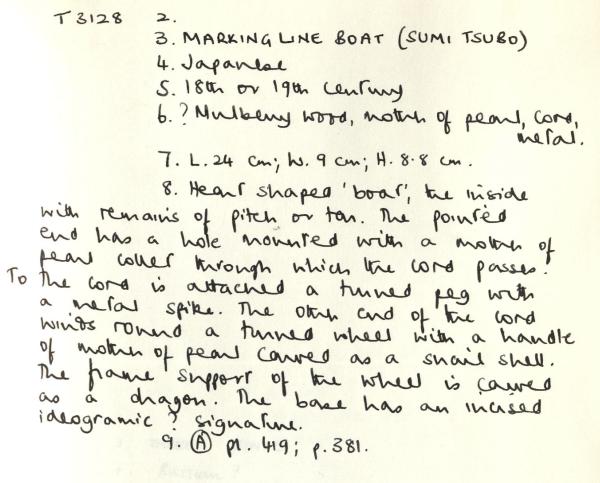 T3128 2.
3. MARKING LINE BOAT (SUMI TSUBO)
4. Japanese
5. 18th or 19th century
6. ? Mulberry wood, mother of pearl, cord,
metal.
7. L. 24 cm; W. 9 cm; H. 8.8 cm.
8. Heart shaped 'boat', the inside
with remains of pitch or tar. The pointed
end has a hole mounted with a mother of
pearl collar through which the cord passes.
To the cord is attached a turned peg with
a metal spike. The other end of the cord
winds round a turned wheel with a handle
of mother of pearl carved as a snail shell.
The frame support of the wheel is carved
as a dragon. The base has an incised
ideogramic ? signature.
9. Ⓐ pl. 419; p. 381.